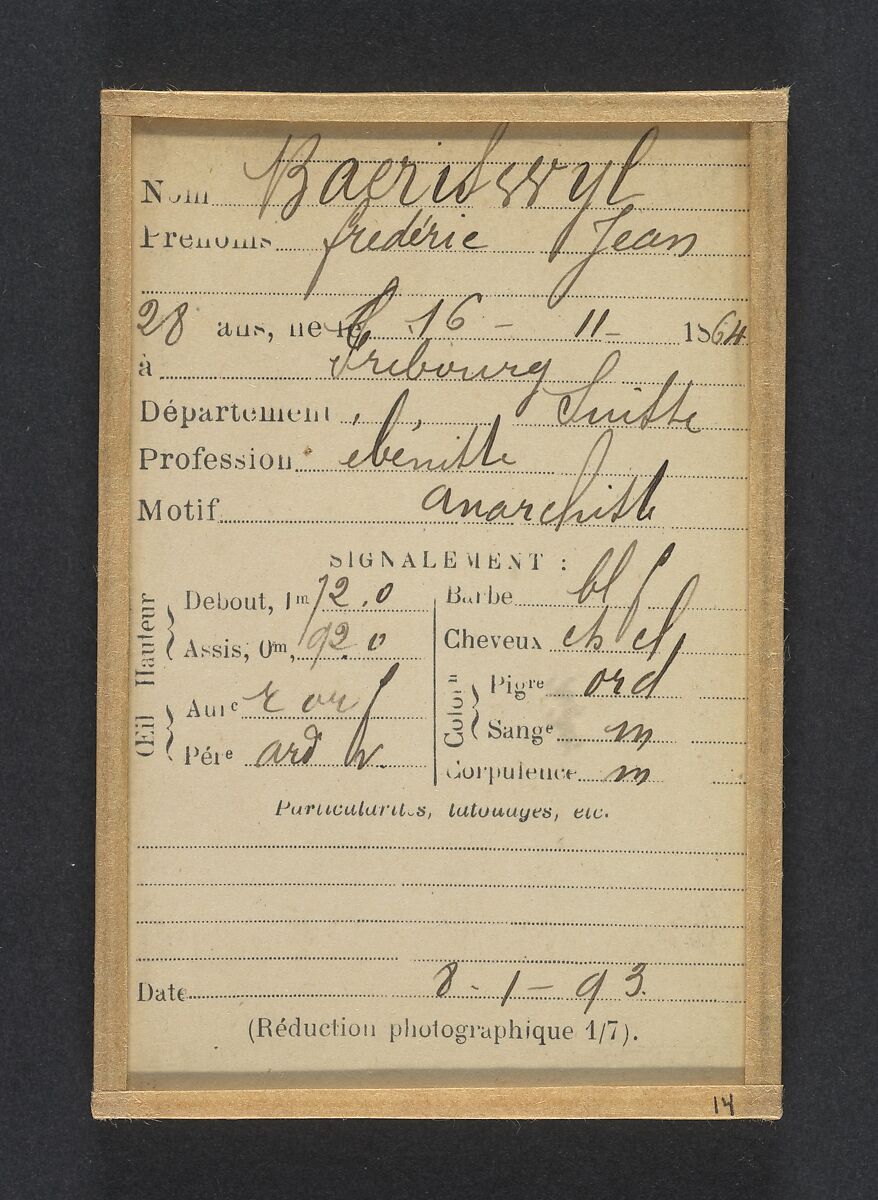 Nom Baeriswyl
Prénoms frédéric Jean
28 ans, né le 16 - 11 - 1864
à Fribourg
Département Suisse
Profession ébéniste
Motif anarchiste
SIGNALEMENT :
Hauteur
Debout, 1m 72.0
Assis, 0m, 92.0
Œil
Aure r or f
Pére ard v.
Barbe bl f
Cheveux ch cl
Color n
Pigre ord
Sange m
Corpulence m
Particularités, tatouages, etc.
Date 8 - 1 - 93.
(Réduction photographique 1/7).
14